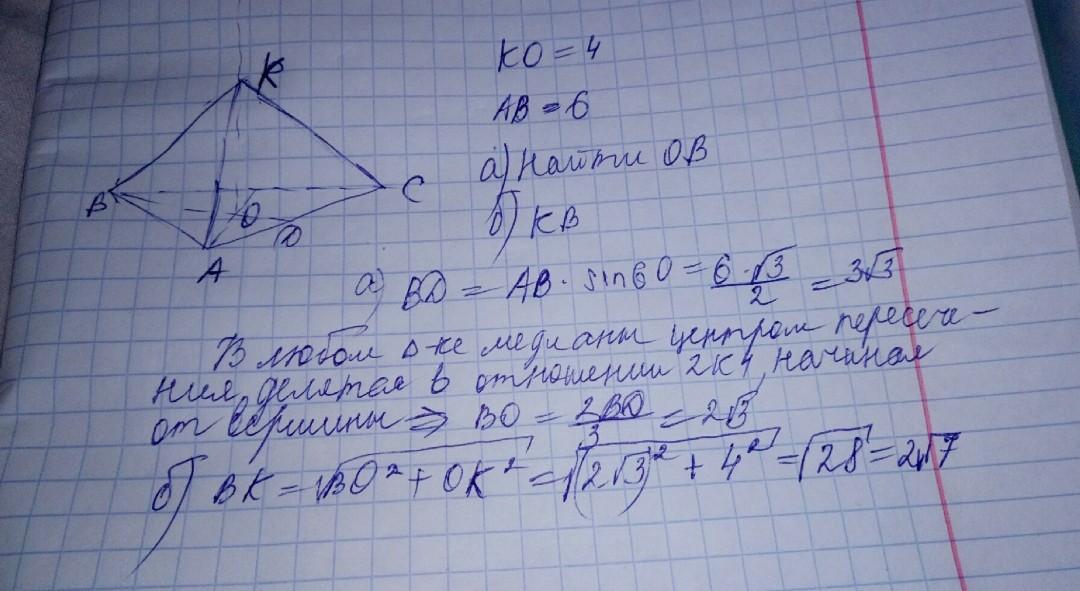 K
B
C
O
D
A
KO = 4
AB = 6
а) Найти OB
б) KB
а) BD = AB · sin 60 = 6·√3/2 = 3√3
В любом Δ-ке медианы центром пересече-
ния делятся в отношении 2к1, начиная
от вершины ⇒ BO = 2BD/3 = 2√3
б) BK = √BO² + OK² = √(2√3)² + 4² = √28 = 2√7